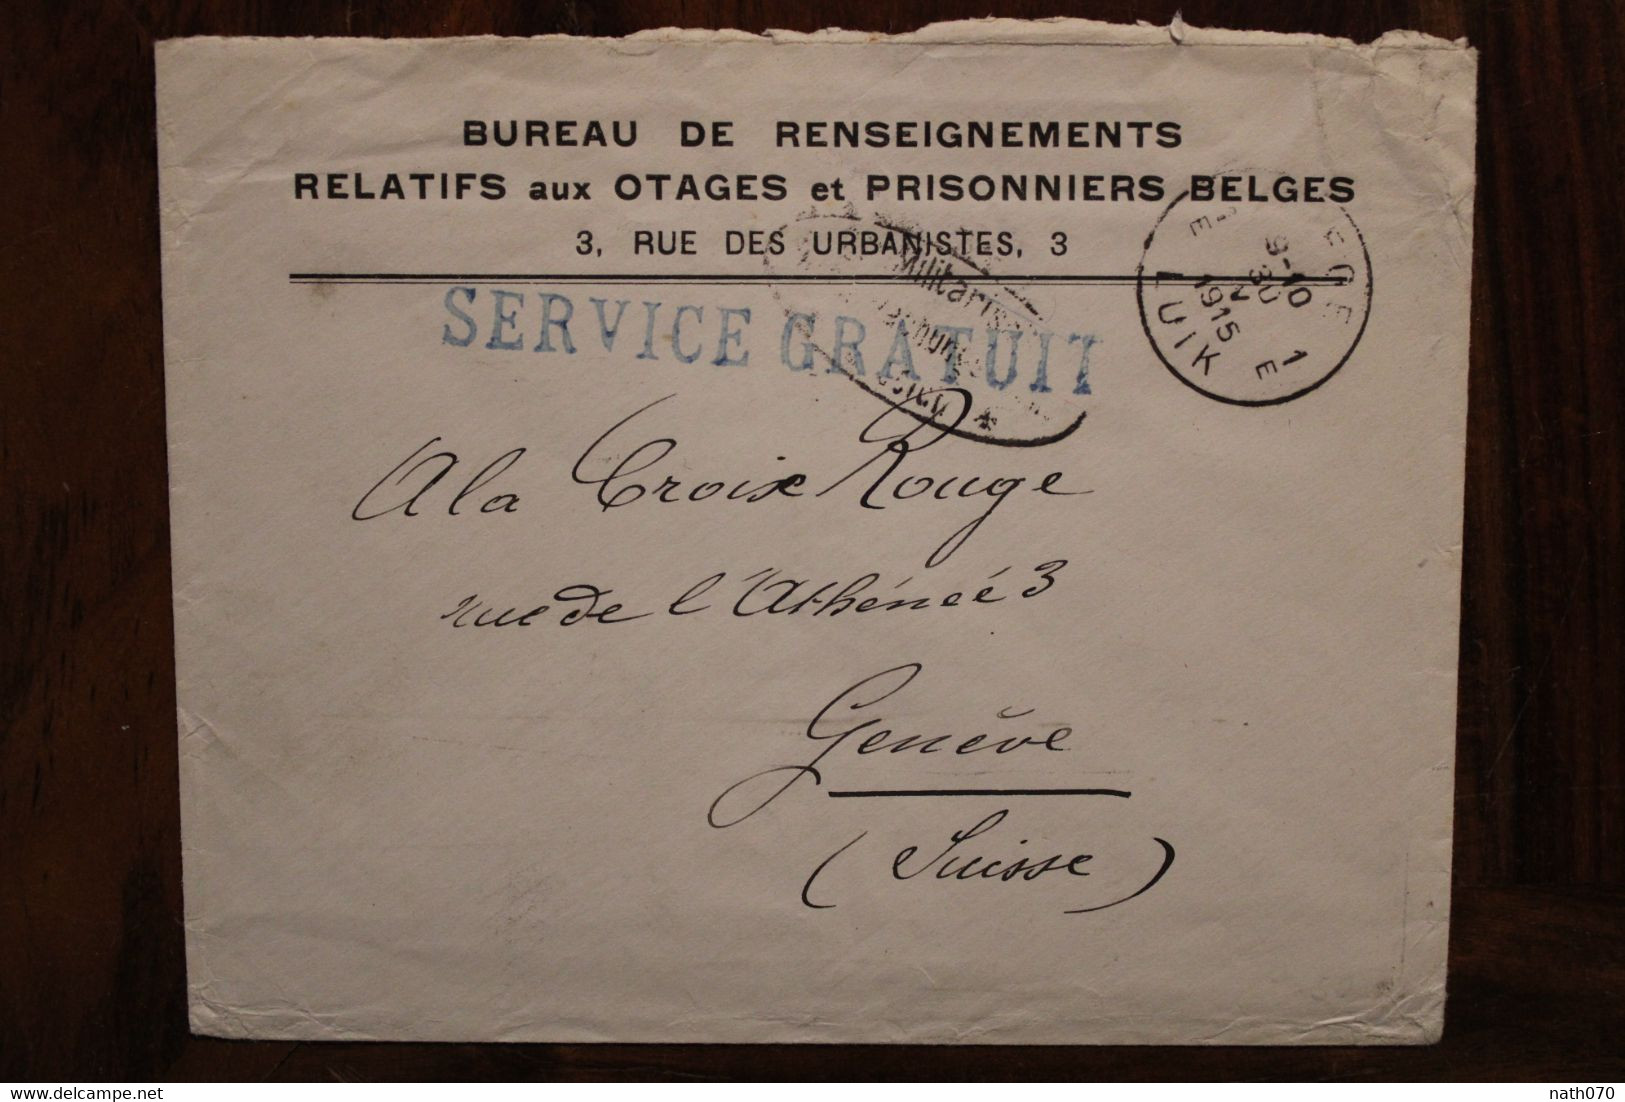 BUREAU DE RENSEIGNEMENTS
RELATIFS aux OTAGES et PRISONNIERS BELGES
3, RUE DES URBANISTES, 3
SERVICE GRATUIT
Militaris
9-10
30
V
1915
1 E
E LUIK
A la Croix Rouge
rue de l'Athénée 3
Genève
(Suisse)
www.delcampe.net
nath070